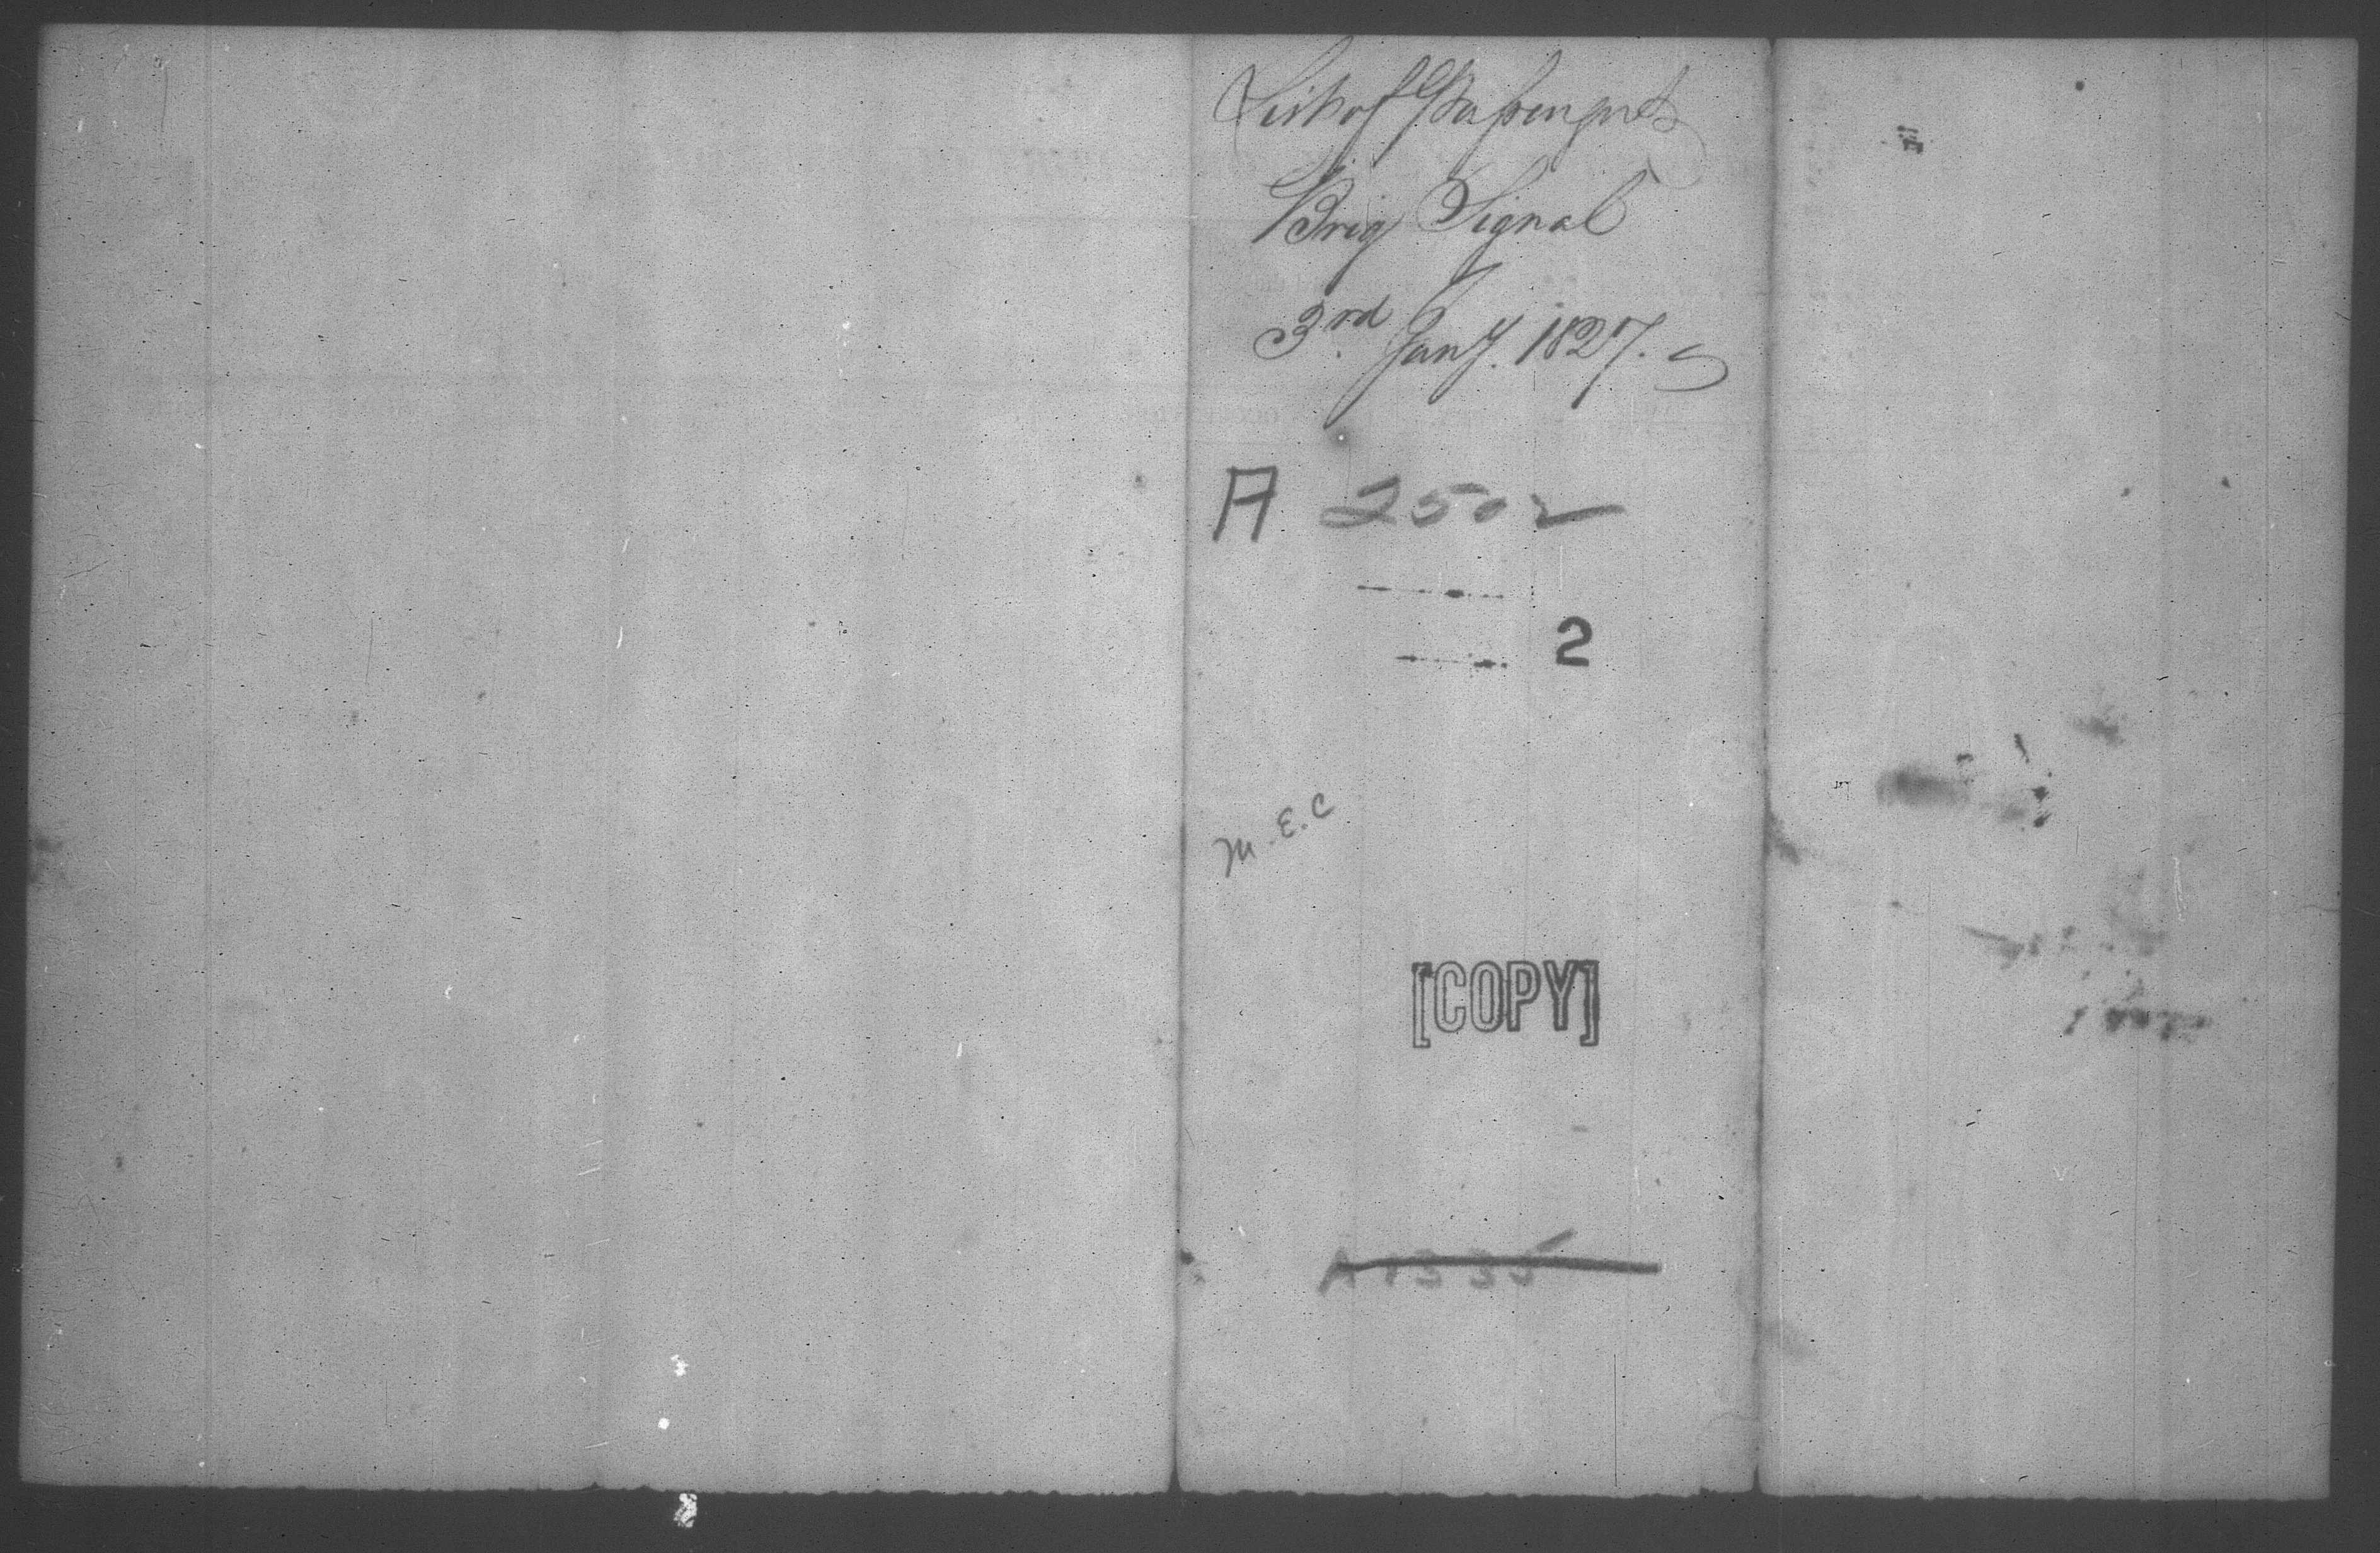 List of Passengers
Brig Signal
3rd Jany. 1827.
A 2502
2
M.E.C
[COPY]
A 1335